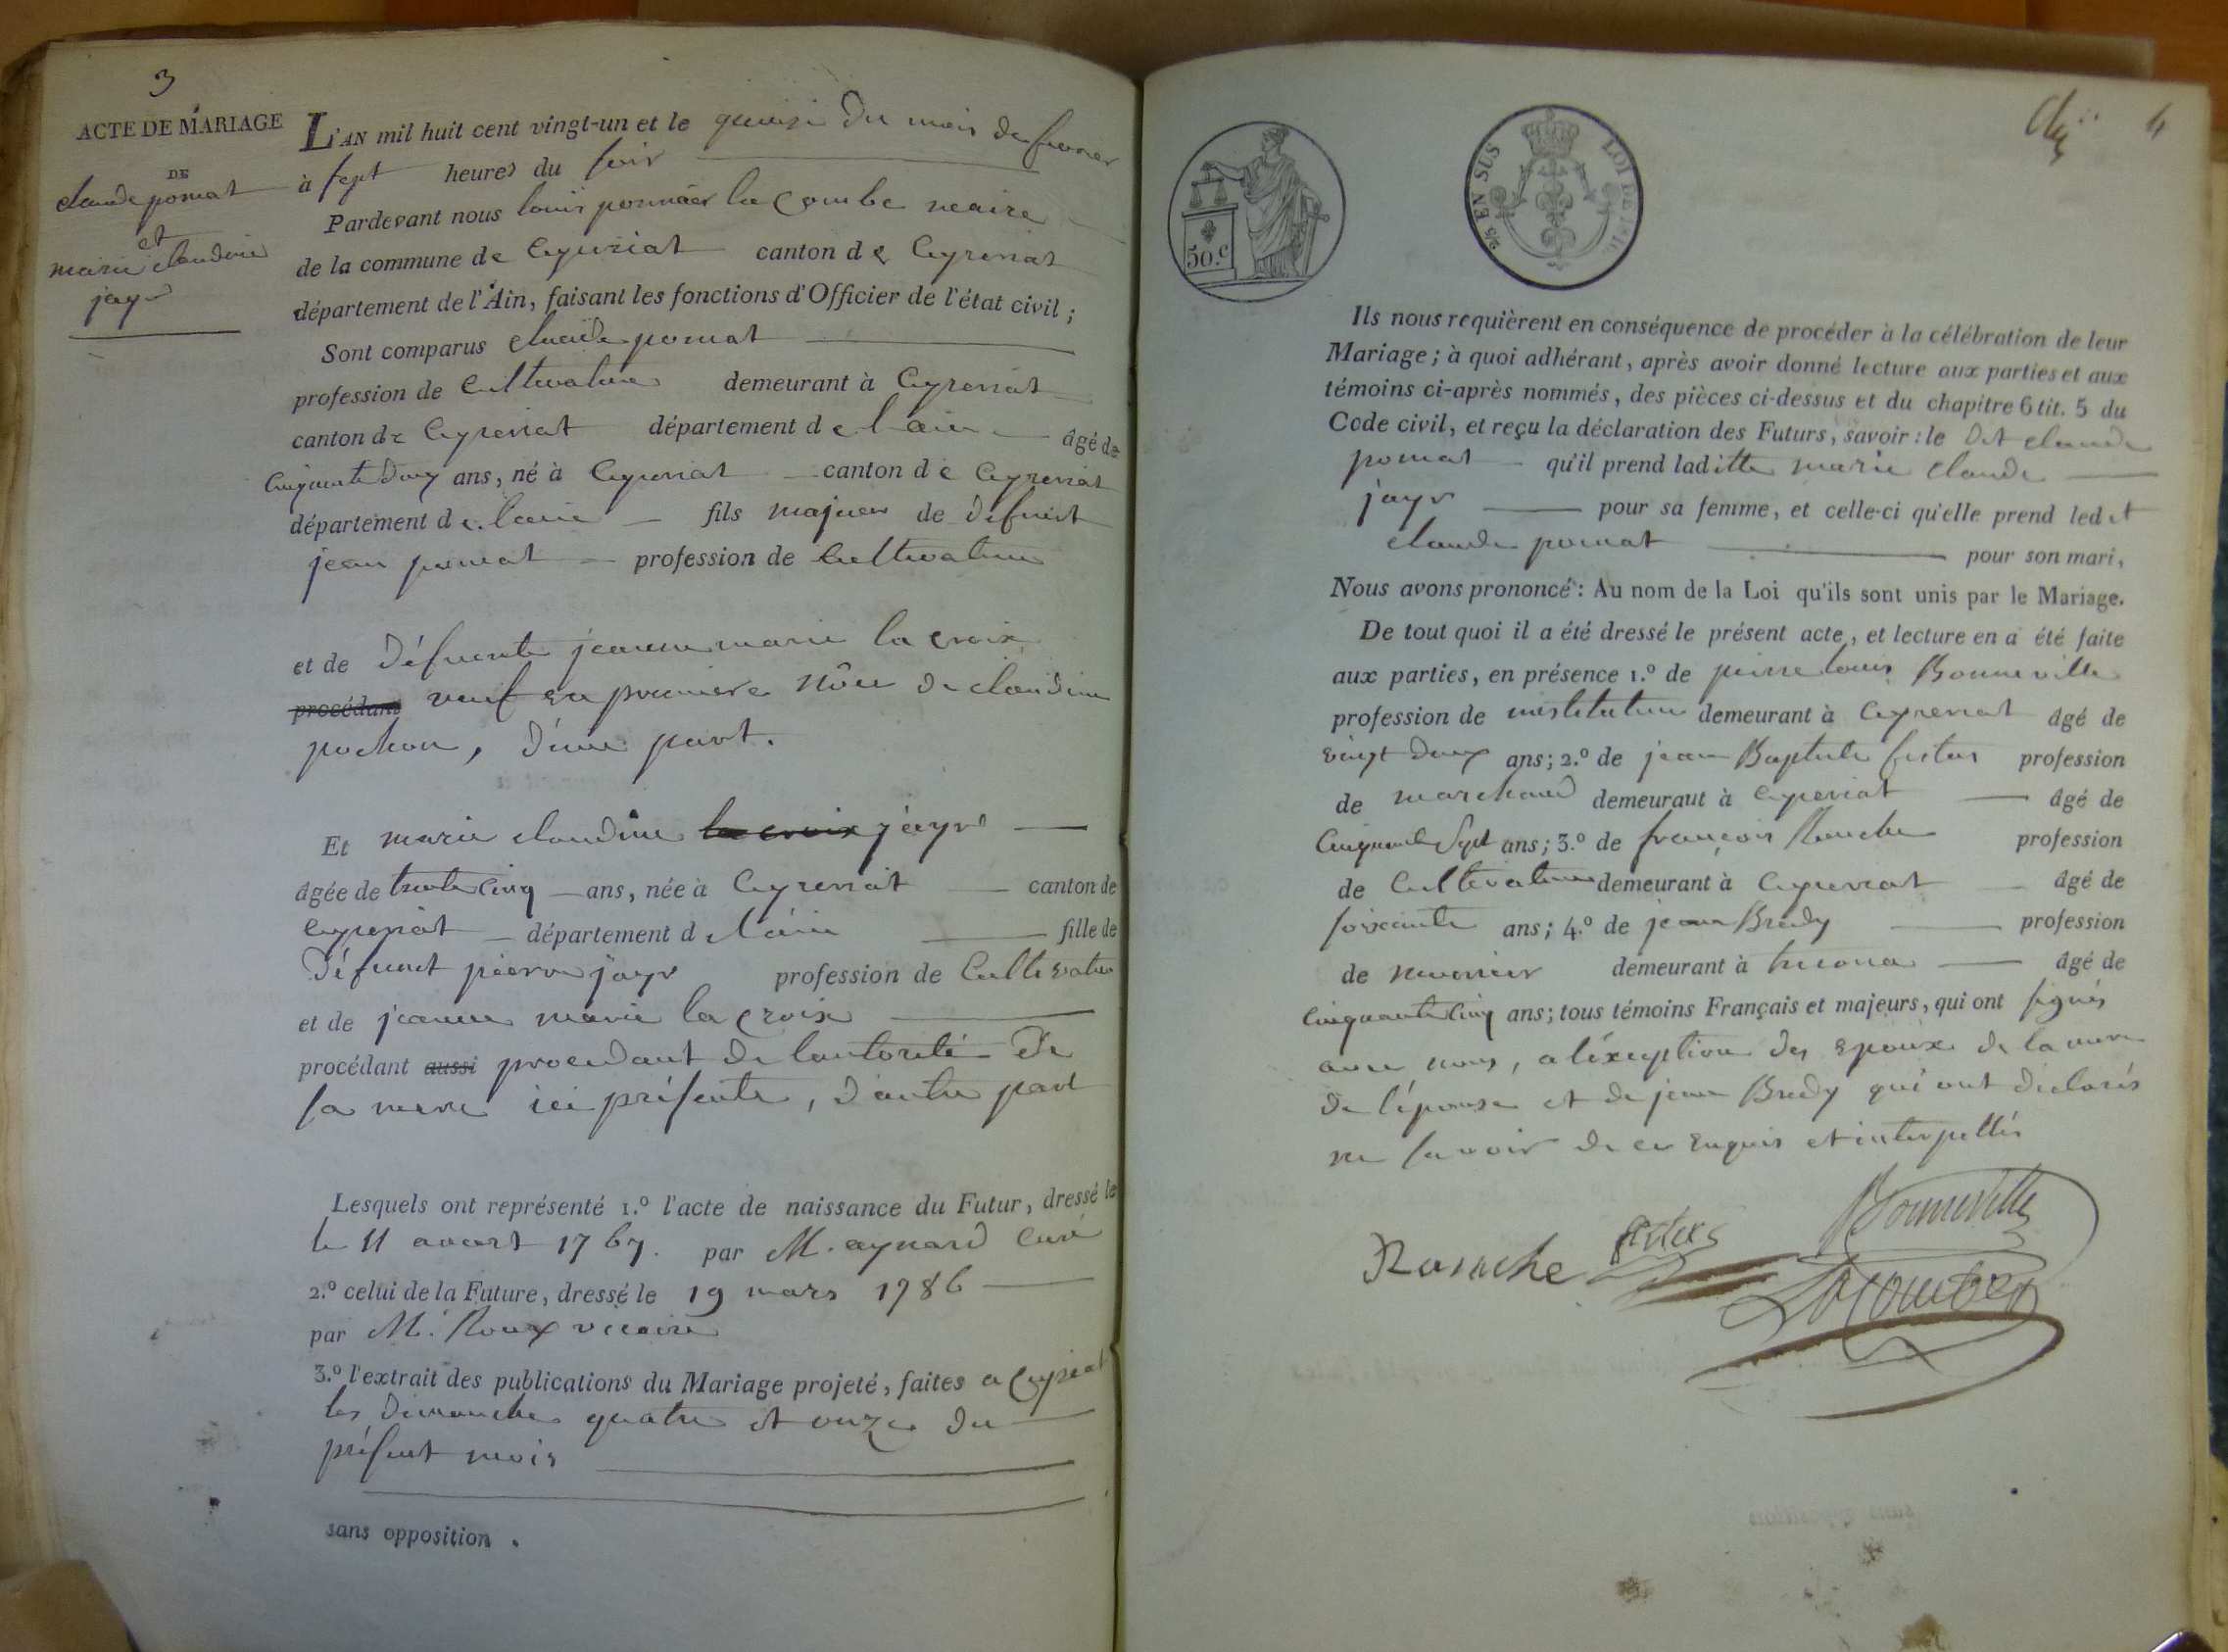 3
ACTE DE MARIAGE
DE
claude pomat
et
marie claudine
jayr
L'AN mil huit cent vingt-un et le quinze du mois de fevrier
à sept heures du soir
Pardevant nous louis la combe maire
de la commune de Ceyzeriat canton de Ceyzeriat
département de l'Ain, faisant les fonctions d'Officier de l'état civil ;
Sont comparus claude pomat
profession de Cultivateur demeurant à Ceyzeriat
canton de Ceyzeriat département de l'ain âgé de
Cinquante deux ans, né à Ceyzeriat canton de Ceyzeriat
département de l'ain fils majeur de defunt
jean pomat profession de Cultivateur
et de défunte jeanne marie la croix
procédant veuf en premiere nôce de claudine
pochon, d'une part.
Et marie claudine la croix jayr
âgée de trente cinq ans, née à Ceyzeriat canton de
Ceyzeriat département de l'ain fille de
défunt pierre jayr profession de Cultivateur
et de jeanne marie la croix
procédant aussi procedant de lautorité de
sa mere ici présente, d'autre part
Lesquels ont représenté 1.º l'acte de naissance du Futur, dressé le
le 11 avert 1767. par M. aynard Curé
2.º celui de la Future, dressé le 19 mars 1786
par M. Roux vicaire
3.º l'extrait des publications du Mariage projeté, faites a Ceyzeriat
les dimanches quatre et onze du
présent mois
sans opposition .
4
50.c
EN SUS
LOI DE
Ils nous requièrent en conséquence de procéder à la célébration de leur
Mariage ; à quoi adhérant, après avoir donné lecture aux parties et aux
témoins ci-après nommés, des pièces ci-dessus et du chapitre 6 tit. 5 du
Code civil, et reçu la déclaration des Futurs, savoir : le dit claude
pomat qu'il prend laditte marie claude
jayr pour sa femme, et celle-ci qu'elle prend ledit
claude pomat pour son mari,
Nous avons prononcé : Au nom de la Loi qu'ils sont unis par le Mariage.
De tout quoi il a été dressé le présent acte, et lecture en a été faite
aux parties, en présence 1.º de pierre louis Bonneville
profession de instituteur demeurant à Ceyzeriat âgé de
vingt deux ans ; 2.º de jean Baptiste profession
de marchand demeuraut à Ceyzeriat âgé de
Cinquante Sept ans ; 3.º de françois Ranche profession
de Cultivateur demeurant à Ceyzeriat âgé de
soixante ans ; 4.º de jean Bredy profession
de demeurant à âgé de
Cinquante Cinq ans ; tous témoins Français et majeurs, qui ont signés
avec nous, a léxception des epoux de la mere
de l'épouse et de jean Bredy qui ont declarés
ne savoir de ce enquis et interpellés
Bonneville
Ranche
Lacombe